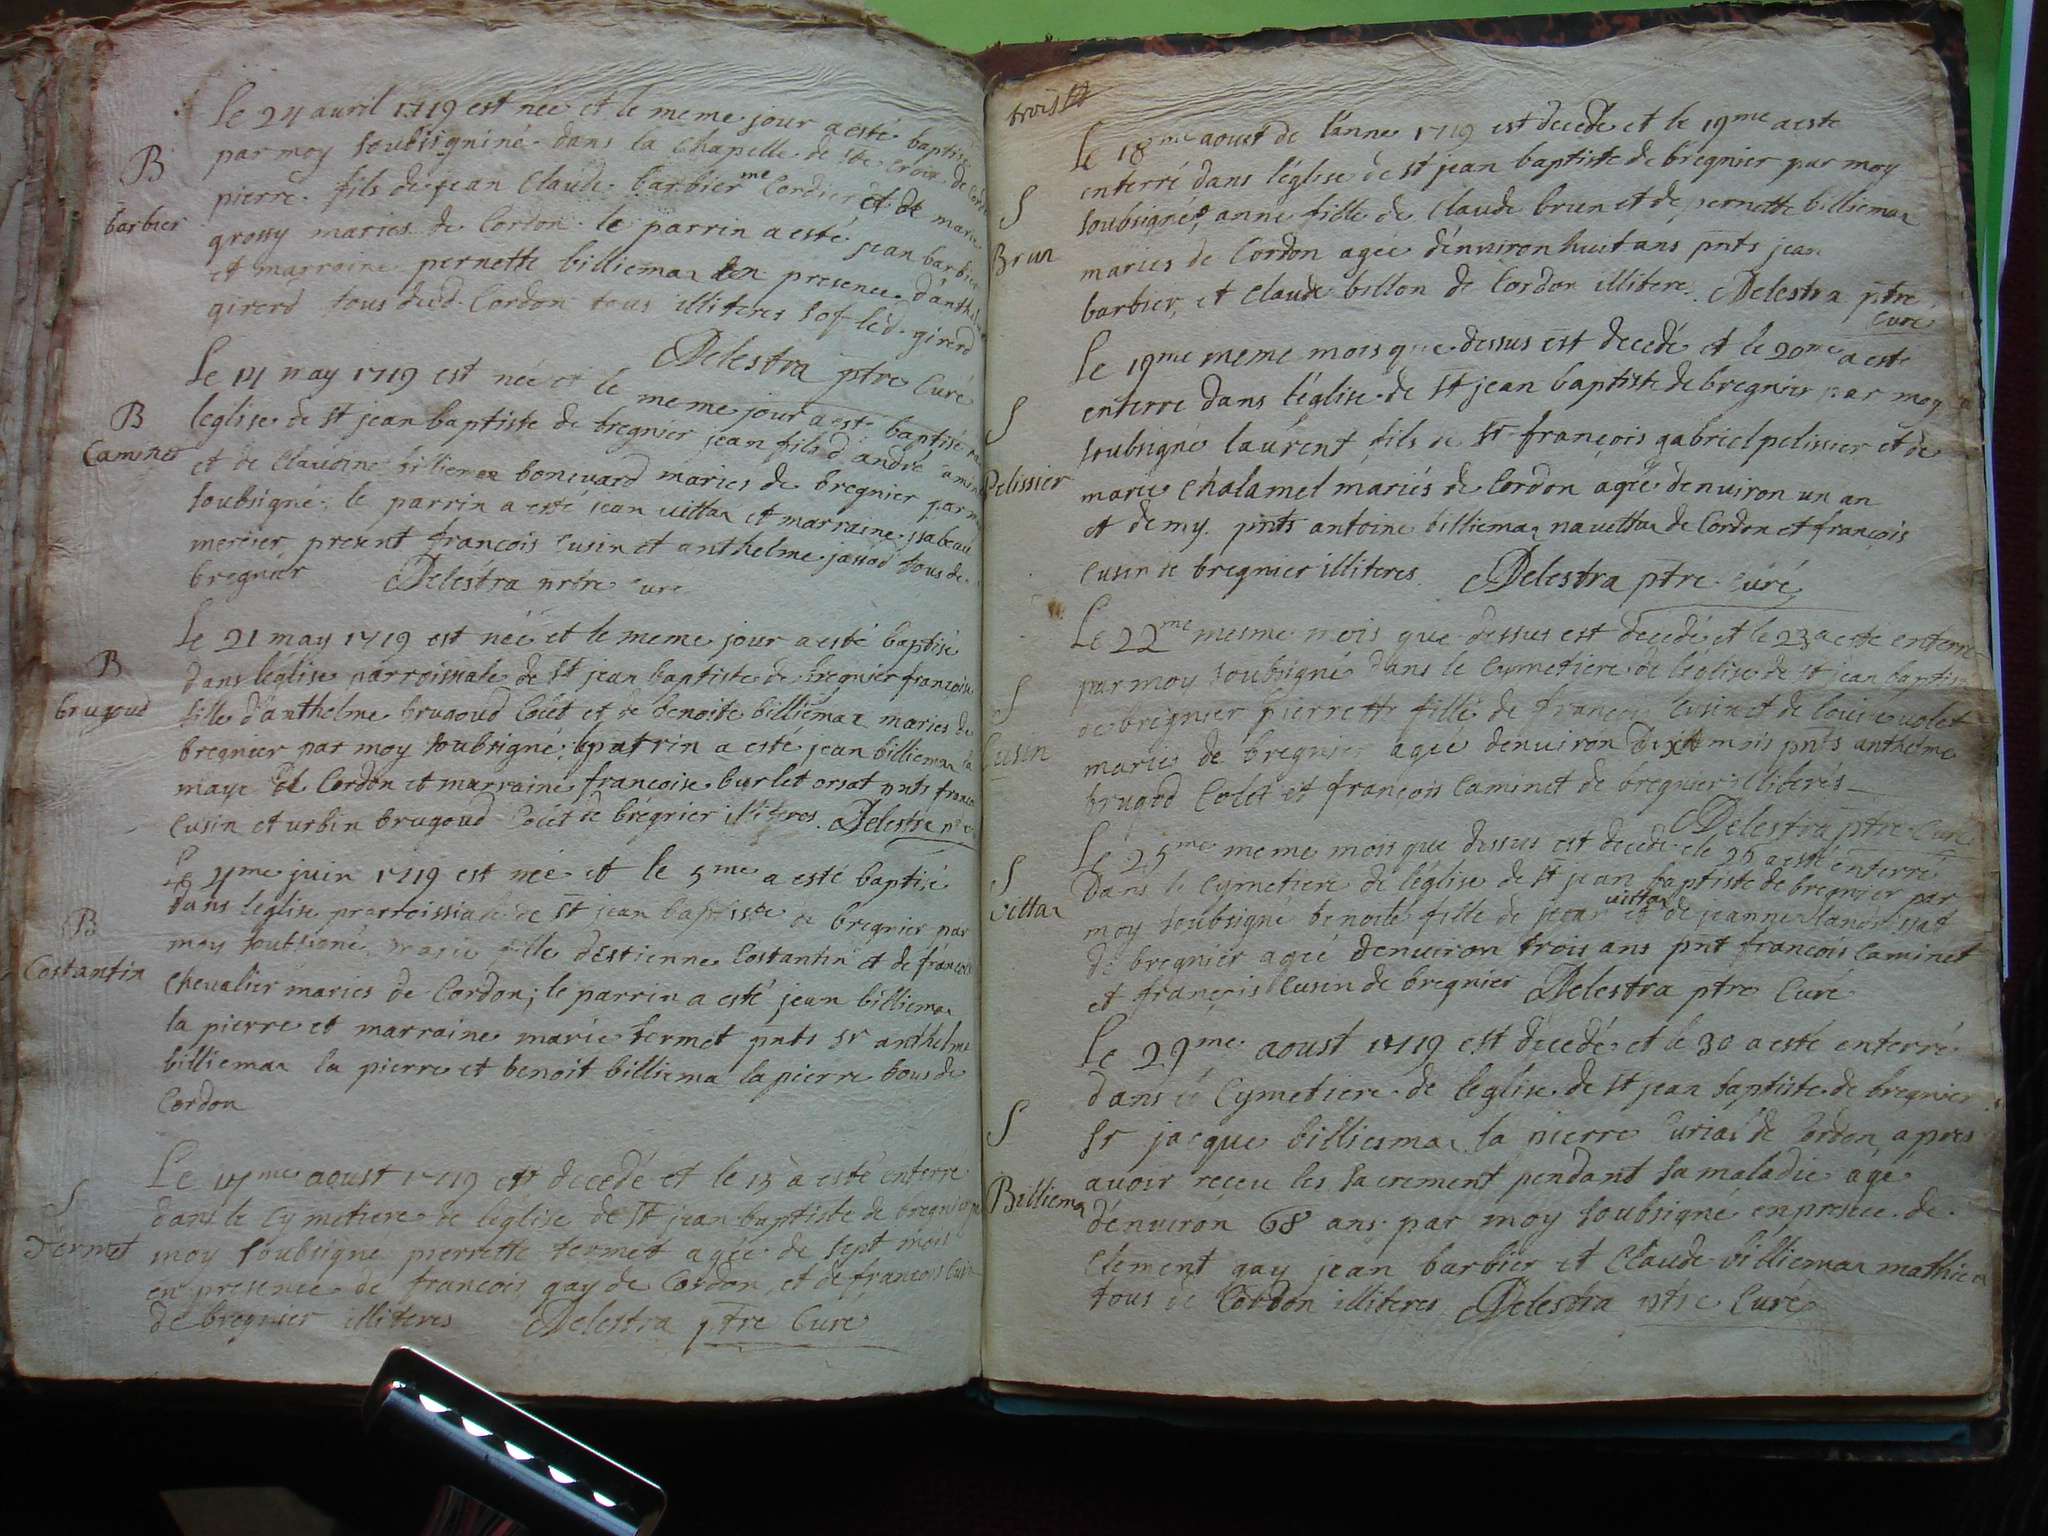 Le 24 avril 1719 est née et le meme jour a esté baptisé
par moy soubsigniné dans la Chapelle de ste Croix de
B
pierre fils de jean Claude barbier me Cordier et de marie
barbier
grossy maries de Cordon le parrin a esté jean barbier
et marraine pernette billiemaz en presence d'anthelme
girerd tous dud. Cordon tous illiteres sof led. girerd
Delestra ptre Curé
Le 14 may 1719 est née et le meme jour a esté baptisé
B
leglise de st jean baptiste de bregnier jean fils d'andré
Caminet
et de Claudine billiemaz bonevard maries de bregnier par
soubsigné, le parrin a esté jean vittaz et marraine ysabeau
mercier present françois Cusin et anthelme jassod tous de
bregnier Delestra prtre Curé
Le 21 may 1719 est née et le meme jour a esté baptisé
B
dans leglise parroissiale de st jean baptiste de bregnier françoise
brugoud
fille d'anthelme brugoud Colet et de benoite billiemaz maries de
bregnier par moy soubsigné, le parrin a esté jean billiemaz la
maye de Cordon et marraine françoise burlet orsat pnts
Cusin et urbin brugoud Colet de brégnier illiteres. Delestra
Le 4me juin 1719 est née et le 5me a esté baptisé
B
dans leglise parroissiale de st jean baptiste de bregnier par
moy soubsigné marie fille d'estienne Costantin et de
Costantin
Chevalier maries de Cordon; le parrin a esté jean billiemaz
la pierre et marraine marie termet pnts sr anthelme
billiemaz la pierre et benoit billiema la pierre tous de
Cordon
Le 14me aoust 1719 est decedé et le 15 a esté enterré
S
dans le Cymetiere de léglise de st jean baptiste de bregnier
Termet
moy soubsigné pierrette termet agée de sept mois
en presence de francois gay de Cordon et de francois Cusin
de bregnier illiteres Delestra ptre Curé
Le 18me aoust de l'anne 1719 est decedé et le 19me a esté
enterré dans léglise de st jean baptiste de brégnier par moy
S
soubsigné, anne fille de Claude brun et de pernette billiemaz
Brun
maries de Cordon agée d'environ huit ans pnts jean
barbier, et Claude billon de Cordon illitere. Delestra ptre
Curé
Le 19me meme mois que dessus est decedé et le 20me a esté
enterré dans l'église de st jean baptiste de bregnier par moy
S
soubsigné laurent fils de sr françois gabriel pelissier et de
Pelissier
marie Chalamel mariés de Cordon agée denviron un an
et demy. pnts antoine billiemaz navettaz de Cordon et françois
Cusin de bregnier illiteres. Delestra ptre Curé
Le 22me mesme mois que dessus est décedé et le 23 a esté enterré
par moy soubsigné dans le Cymetiere de léglise de st jean baptiste
S
de bregnier pierrette fille de françois Cusin et de louise volet
Cusin
maries de bregnier agée denviron dix mois pnts anthelme
brugod Colet et françois Caminet de bregnier illiterés
Delestra ptre Curé
Le 25me meme mois que dessus est decede et le 26 a esté enterré
S
dans le Cymetiere de léglise de st jean baptiste de bregnier par
vittaz
vittaz
moy soubsigné benoite fille de jean et de jeanne
de bregnier agée denviron trois ans pnt françois Caminet
et françois Cusin de bregnier Delestra ptre Curé
Le 29me aoust 1719 est décedé et le 30 a esté enterré
dans le Cymetiere de leglise de st jean baptiste de bregnier
S
sr jacque billiesmaz la pierre Curial de Cordon apres
avoir reçeu les sacrement pendant sa maladie agé
Billiema
d'environ 68 ans par moy soubsigné en presence de
Clement gay jean barbier et Claude billiemaz mathieu
tous de Cordon illiteres. Delestra ptre Curé